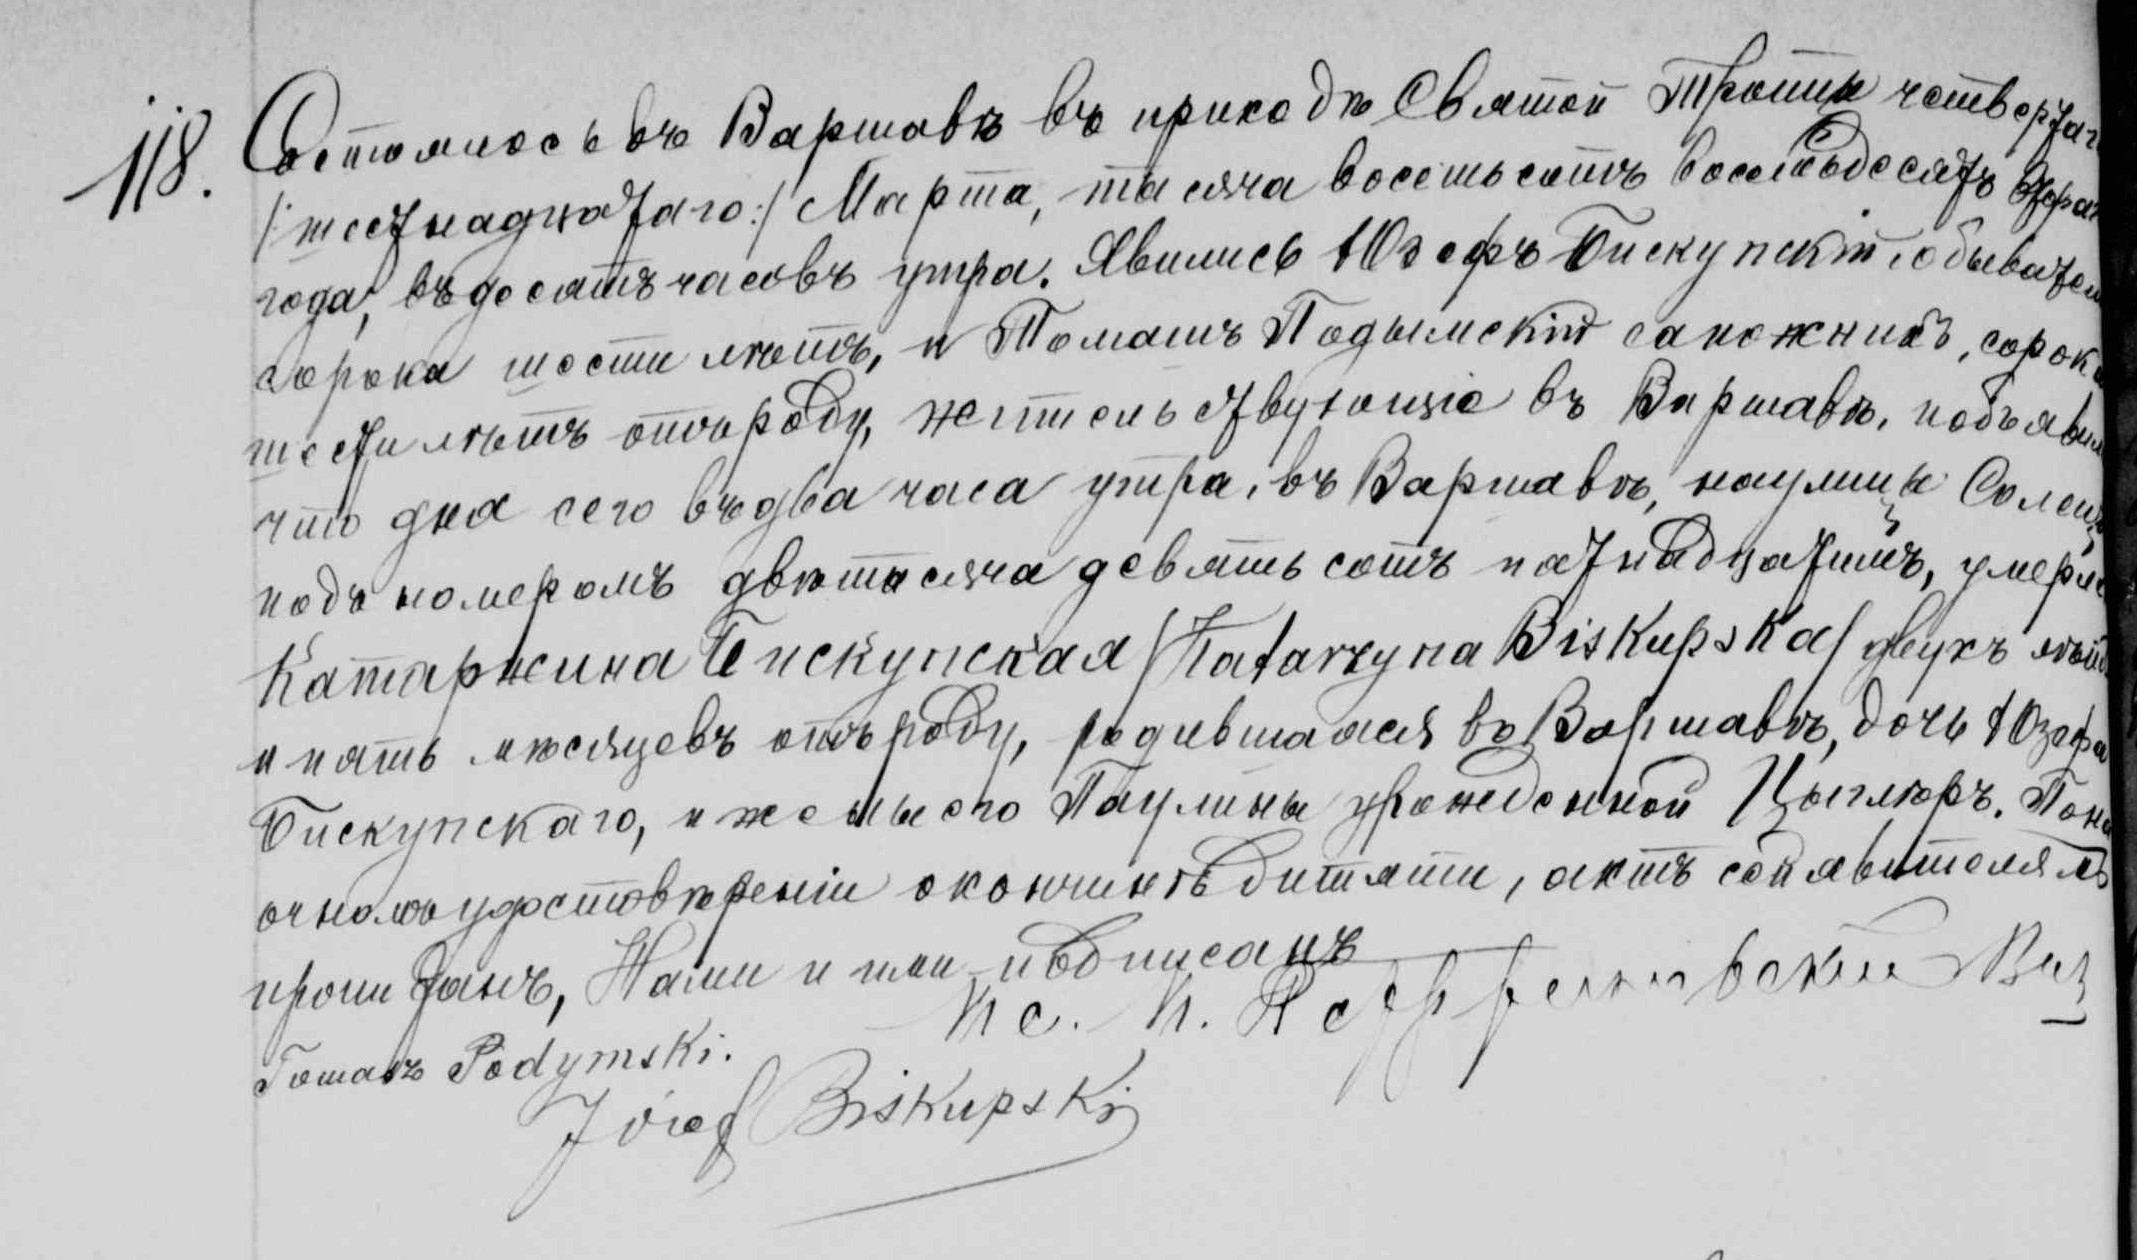 118. Состоялось въ Варшавѣ въ приходѣ Святой Троицы четвертаг
/:шестнадцатаго:/ Марта, тысяча восемьсотъ восемьдесятъ втораг
года, въ десять часовъ утра. Явились Юзефъ Бискупскій обывател
сорока шести лѣтъ, и Томашъ Подымскій сапожникъ, сорока
шести лѣтъ отъ роду, жительствующіе въ Варшавѣ, и объявили
что дня сего въ два часа утра, въ Варшавѣ, на улицы Солецъ
подъ номеромъ двѣ тысяча девятьсотъ пятнадцатимъ, умерла
Катаржина Бискупская /Katarzyna Biskupska/ двухъ лѣтъ
и пять мѣсяцевъ отъ роду, родившаяся въ Варшавѣ, дочь Юзефа
Бискупскаго, и жены его Паулины урожденной Цыглеръ. По на
очномъ удостовѣреніи о кончинѣ дитяти, актъ сей явителямъ
прочитанъ, Нами и ими подписанъ
Кс. К.
Томашъ Podymski.
Józef Biskupski